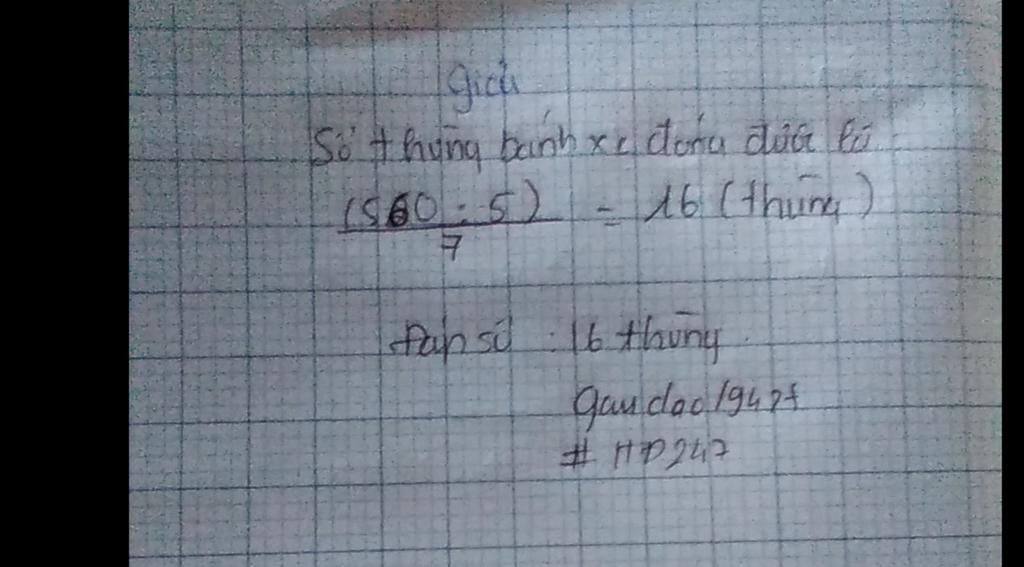 Giải
Số thùng bánh xe đóng được là:
(560 : 5) / 7 = 16 (thùng)
Đáp số : 16 thùng
gaudao1947f
# HD247